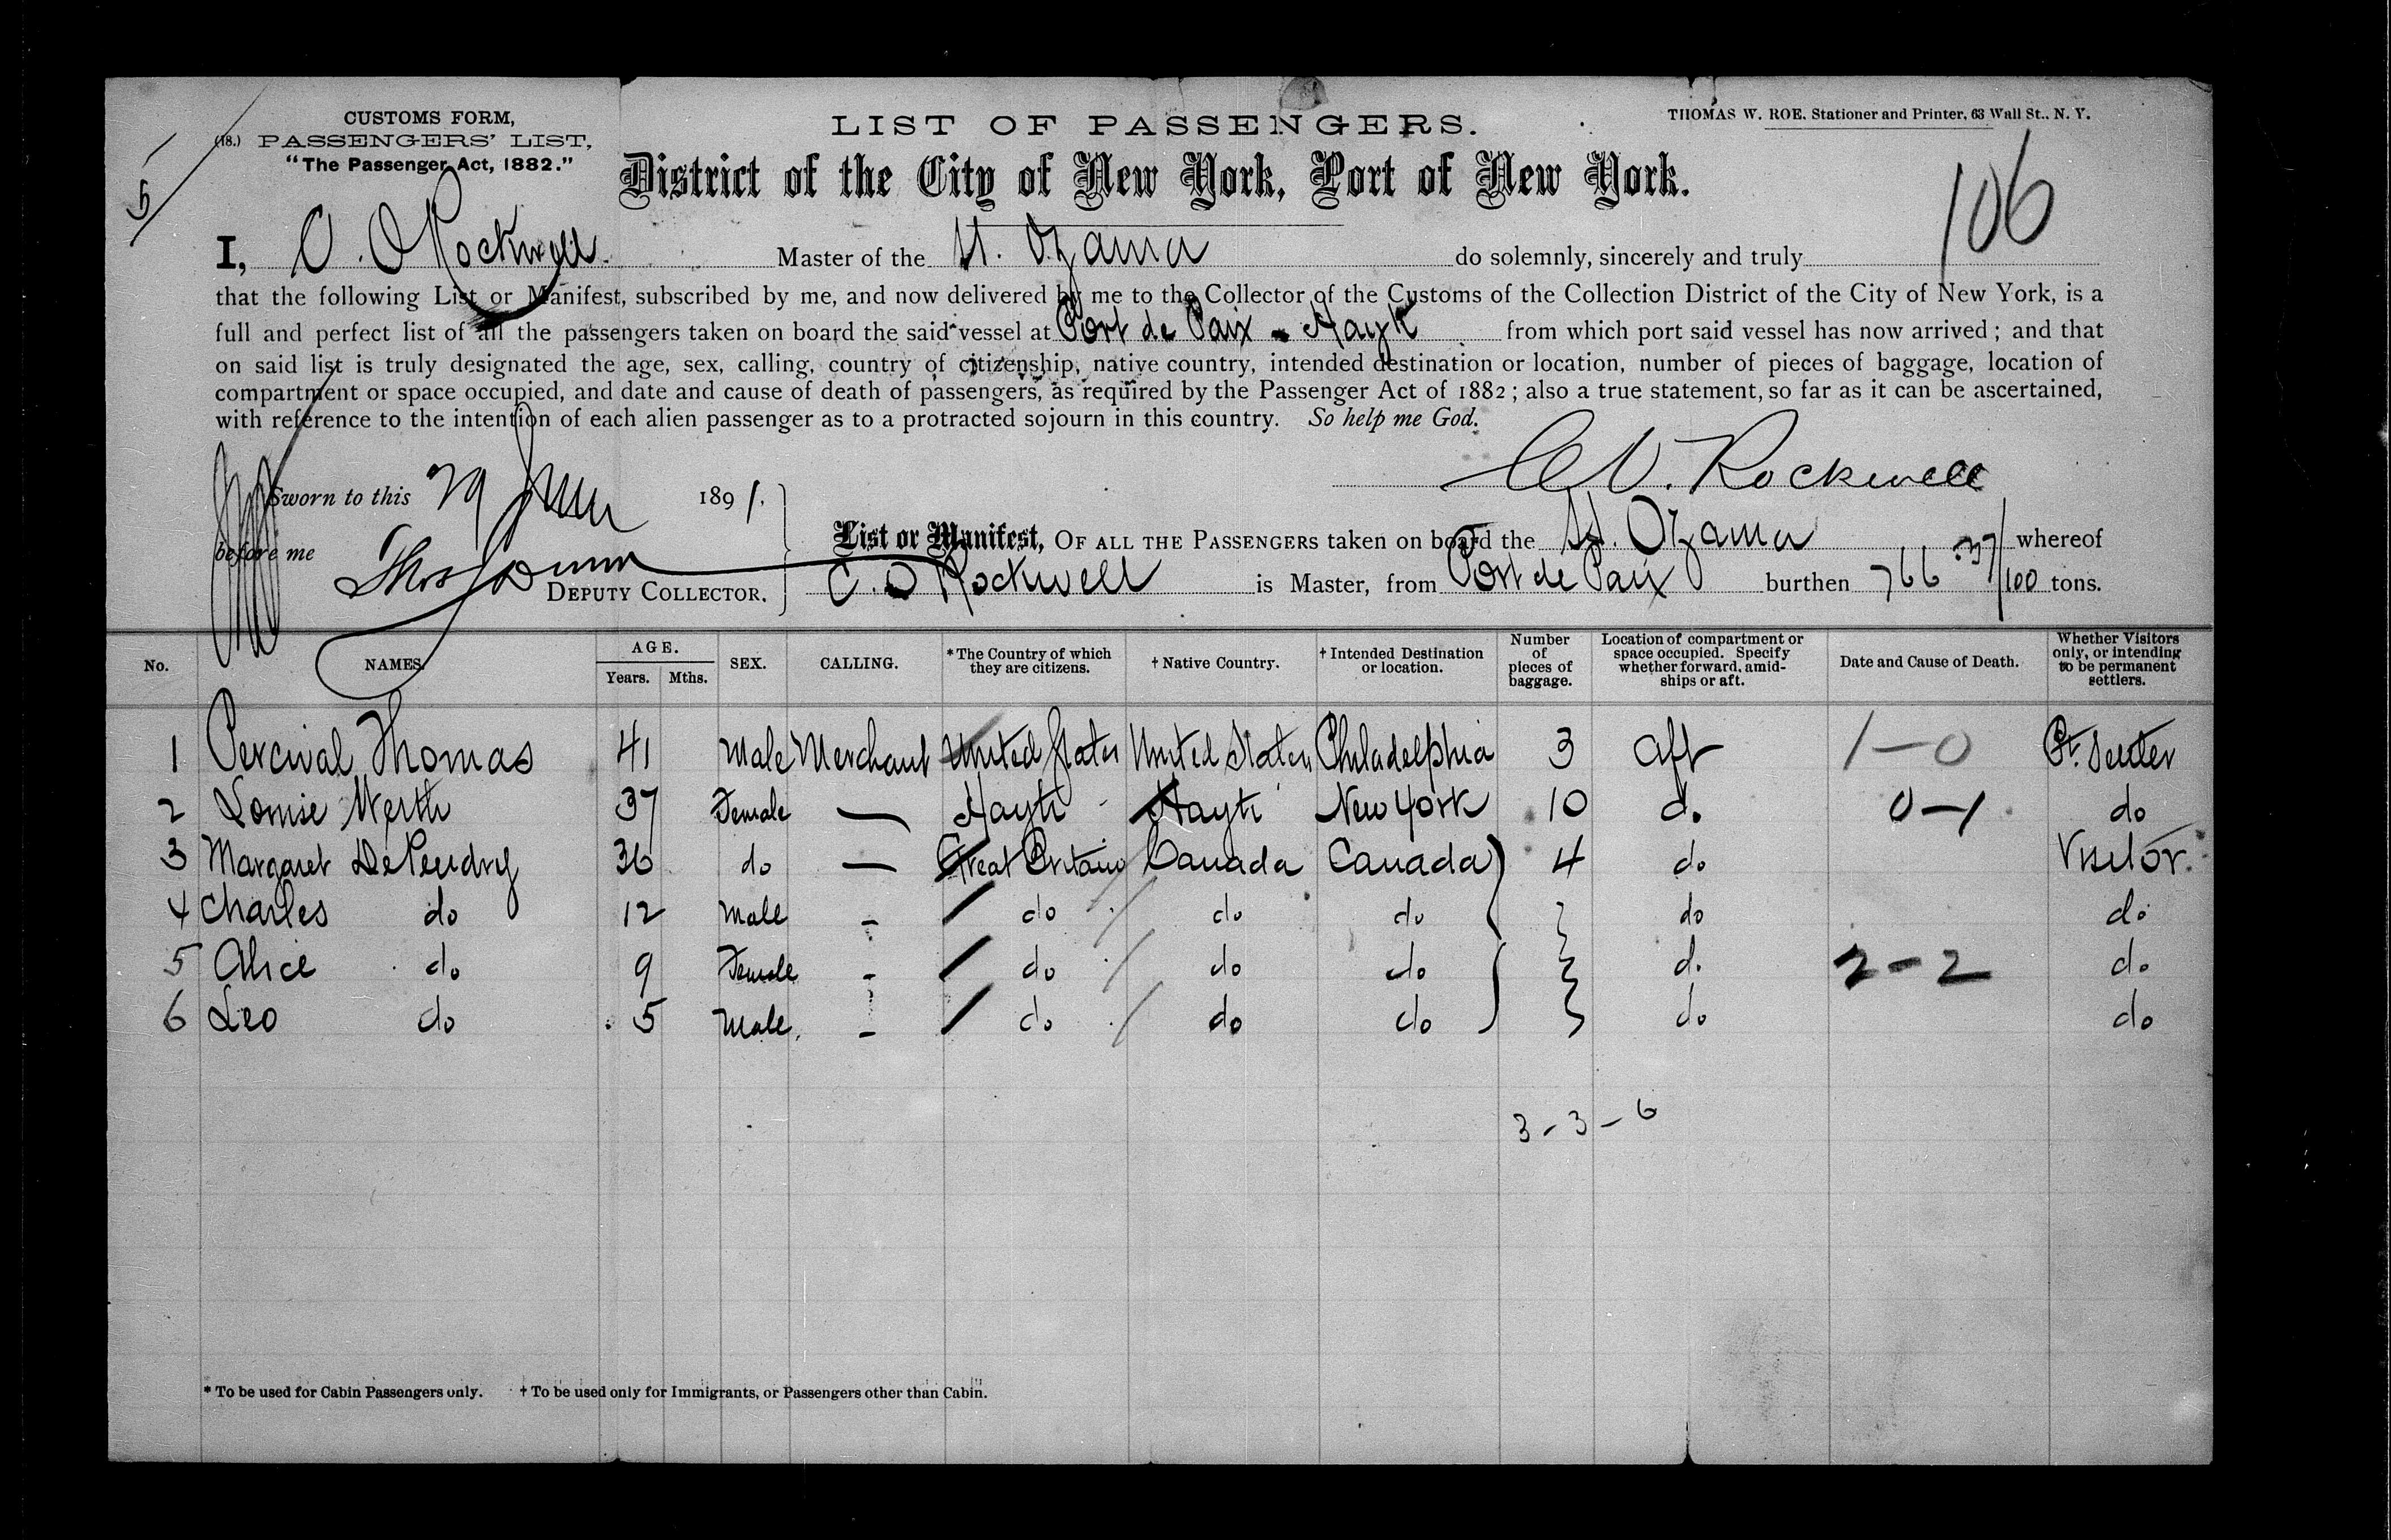 CUSTOMS FORM,
(18.) PASSENGERS' LIST,
"The Passenger Act, 1882."
5
LIST OF PASSENGERS.
THOMAS W. ROE, Stationer and Printer, 63 Wall St., N. Y.
District of the City of New York, Port of New York.
106
I, C. O Rockwell Master of the St. Ozama do solemnly, sincerely and truly
that the following List or Manifest, subscribed by me, and now delivered by me to the Collector of the Customs of the Collection District of the City of New York, is a
full and perfect list of all the passengers taken on board the said vessel at Port de Paix - Hayti from which port said vessel has now arrived; and that
on said list is truly designated the age, sex, calling, country of citizenship, native country, intended destination or location, number of pieces of baggage, location of
compartment or space occupied, and date and cause of death of passengers, as required by the Passenger Act of 1882; also a true statement, so far as it can be ascertained,
with reference to the intention of each alien passenger as to a protracted sojourn in this country. So help me God.
C. O. Rockwell
Sworn to this 29 June 1891.
before me
Thos Dunn DEPUTY COLLECTOR.
List or Manifest, OF ALL THE PASSENGERS taken on board the St. Ozama whereof
C. O Rockwell is Master, from Port de Paix burthen 766 37/100 tons.
No. NAMES. AGE. Years. Mths. SEX. CALLING. *The Country of which they are citizens. † Native Country. † Intended Destination or location. Number of pieces of baggage. Location of compartment or space occupied. Specify whether forward, amidships or aft. Date and Cause of Death. Whether Visitors only, or intending to be permanent settlers.
1 Percival Thomas 41 Male Merchant United States United States Philadelphia 3 aft 1-0 Pt. Settler
2 Louise Werth 37 Female — Hayti Hayti New York 10 do 0-1 do
3 Margaret DePendry 36 do — Great Britain Canada Canada 4 do Visitor
4 Charles do 12 Male - do do do do do
5 Alice do 9 Female - do do do do 2-2 do
6 Leo do 5 Male - do do do do do
3-3-6
* To be used for Cabin Passengers only. † To be used only for Immigrants, or Passengers other than Cabin.